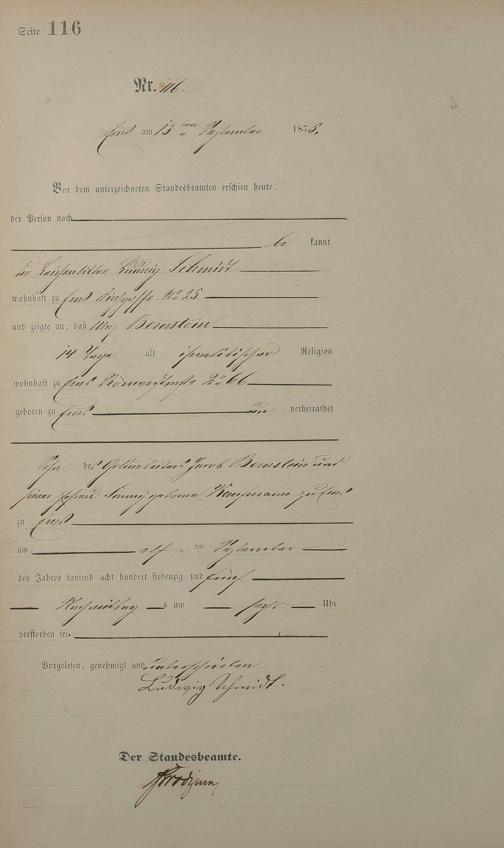 Seite 116
Nr. 116.
Ems am 13 ten September 1875.
Vor dem unterzeichneten Standesbeamten erschien heute,
der Person nach
be kannt
der Leichenbitter Ludwig Schmidt
wohnhaft zu Ems No 25
und zeigte an, daß Bernstein
14 Tage alt israelitischer Religion
wohnhaft zu Ems No 66
geboren zu Ems un verheirathet
Sohn des Jacob Bernstein und
seiner Ehefrau Fanny geborene Kaufmann zu Ems
zu Ems
am elf ten September
des Jahres tausend acht hundert siebenzig und fünf
Nachmittag s um sechs Uhr
verstorben sei.
Vorgelesen, genehmigt und unterschrieben
Ludwig Schmidt.
Der Standesbeamte.